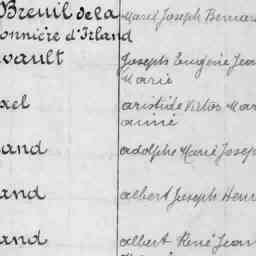 Breuil de la Marcel Joseph Bernar
onnière d'Irland
vault Joseph Eugène Jean
Marie
xel aristide Victor Mar
aimé
and adolphe Marie Josep
and albert Joseph Henr
and albert René Jean